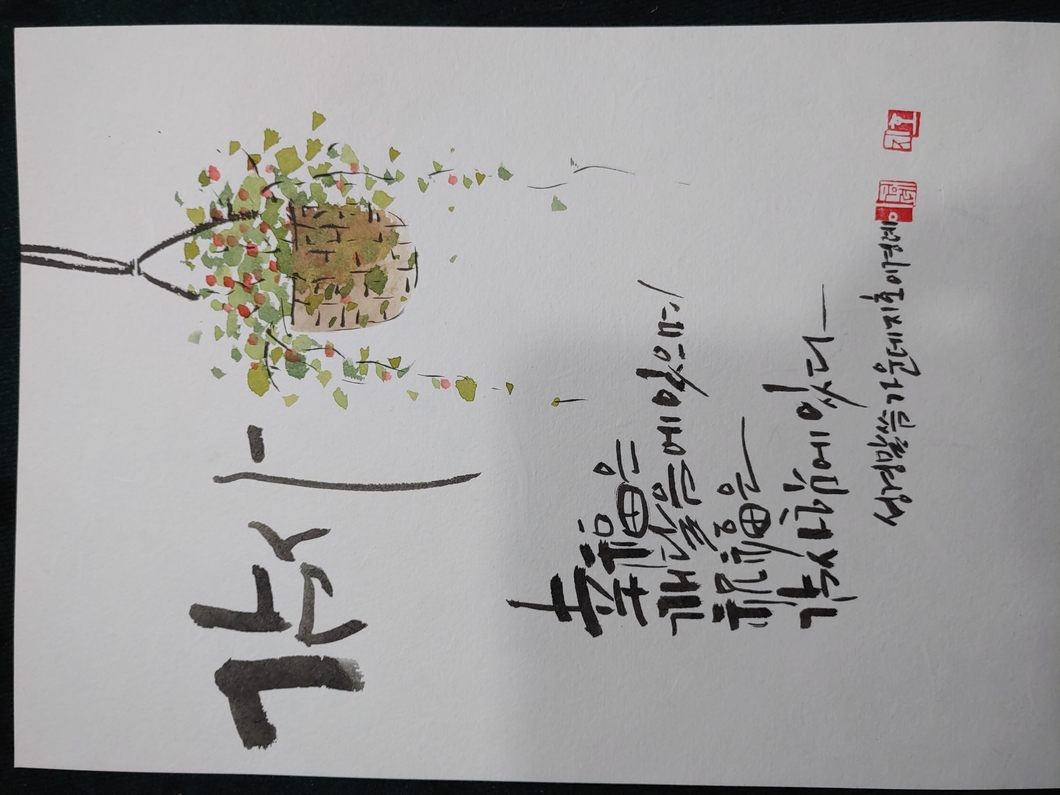 감사
幸福은
깨달음에 있으며
祝福은
감사함에 있다
성경말씀 가운데 지호 이경례
지호